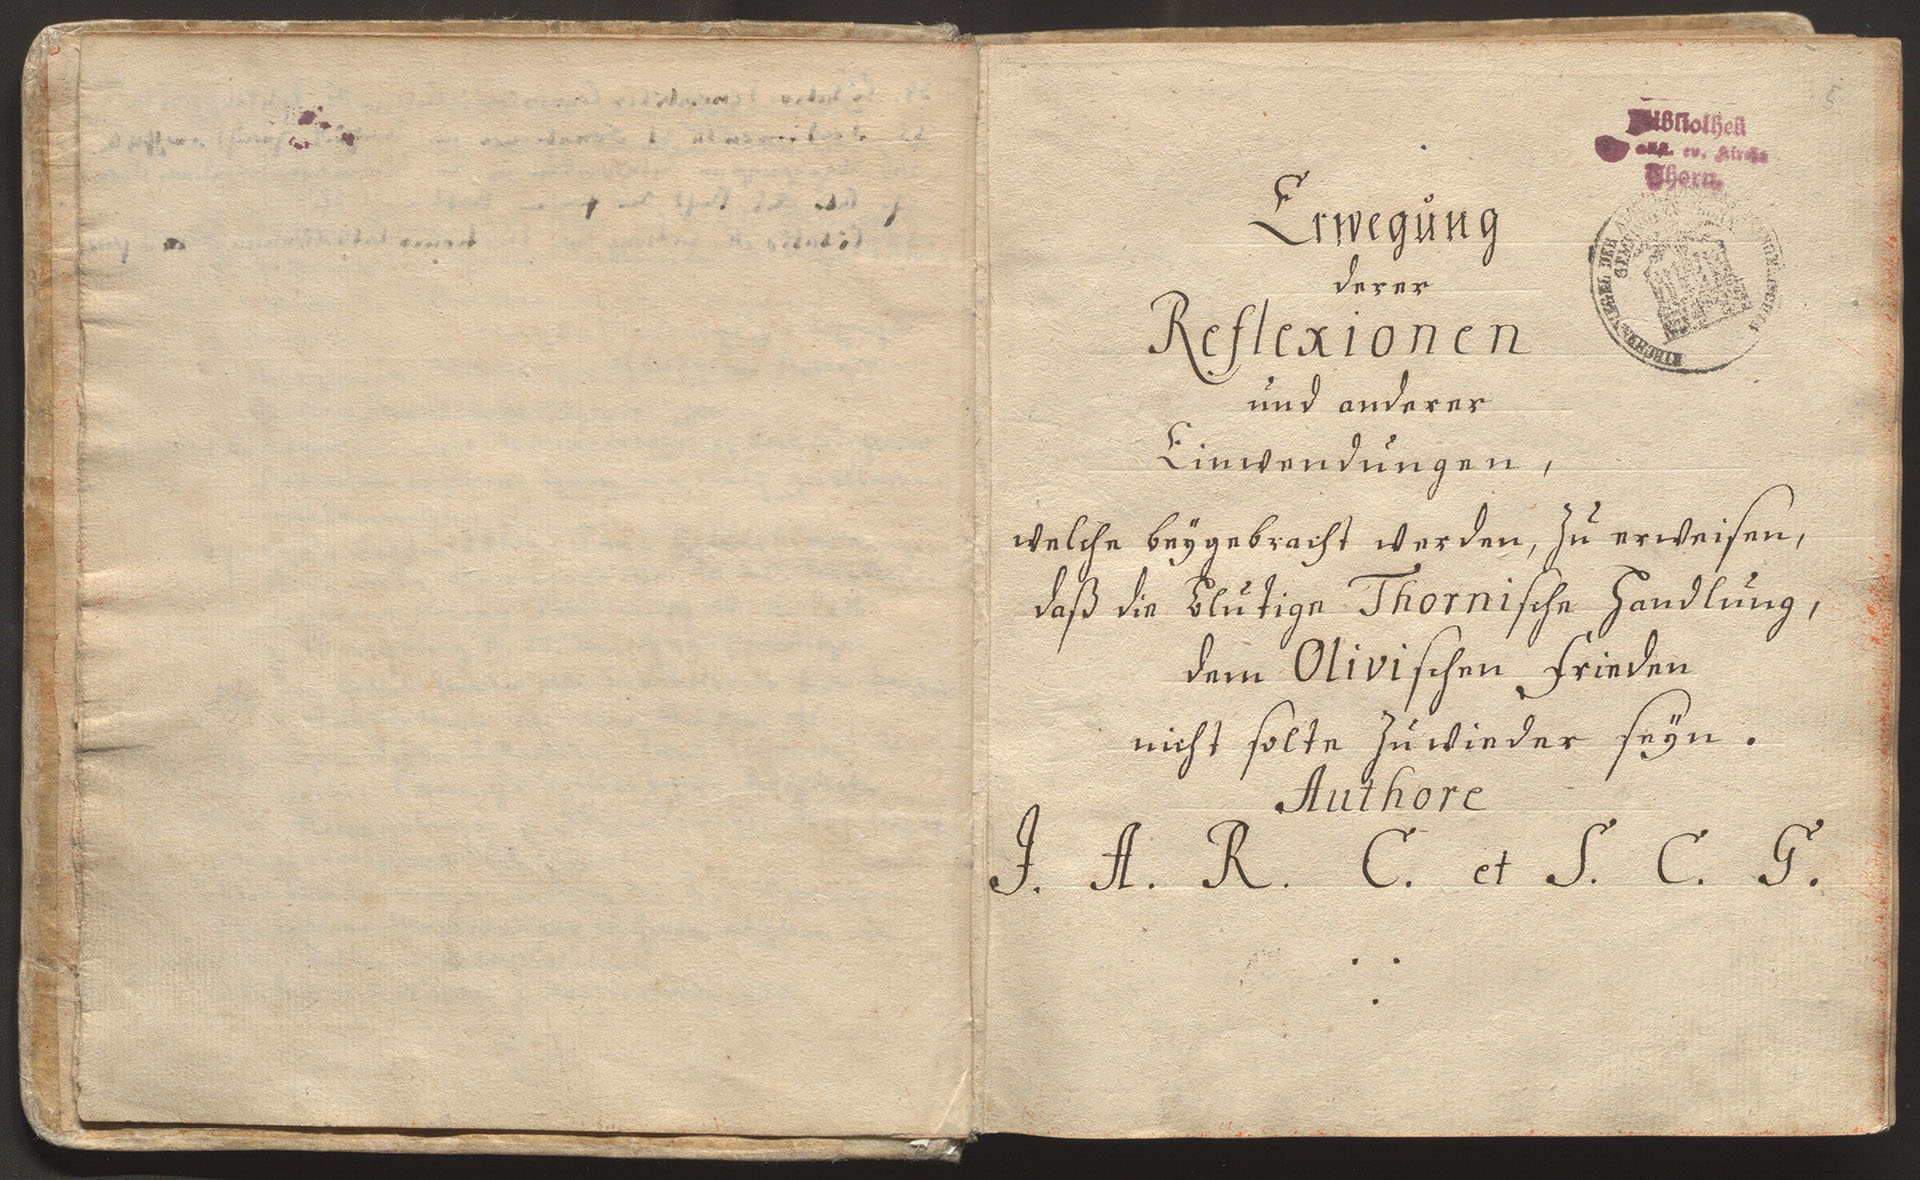 5
Bibliothek
altst. ev. Kirche
Thorn.
KIRCHENSIEGEL DER
Erwegung
derer
Reflexionen
und anderer
Einwendungen,
welche beygebracht werden, zu erweisen,
daß die blutige Thornische Handlung,
dem Olivischen Frieden
nicht solte zuwieder seyn.
Authore
J. A. R. C. et S. C. G.